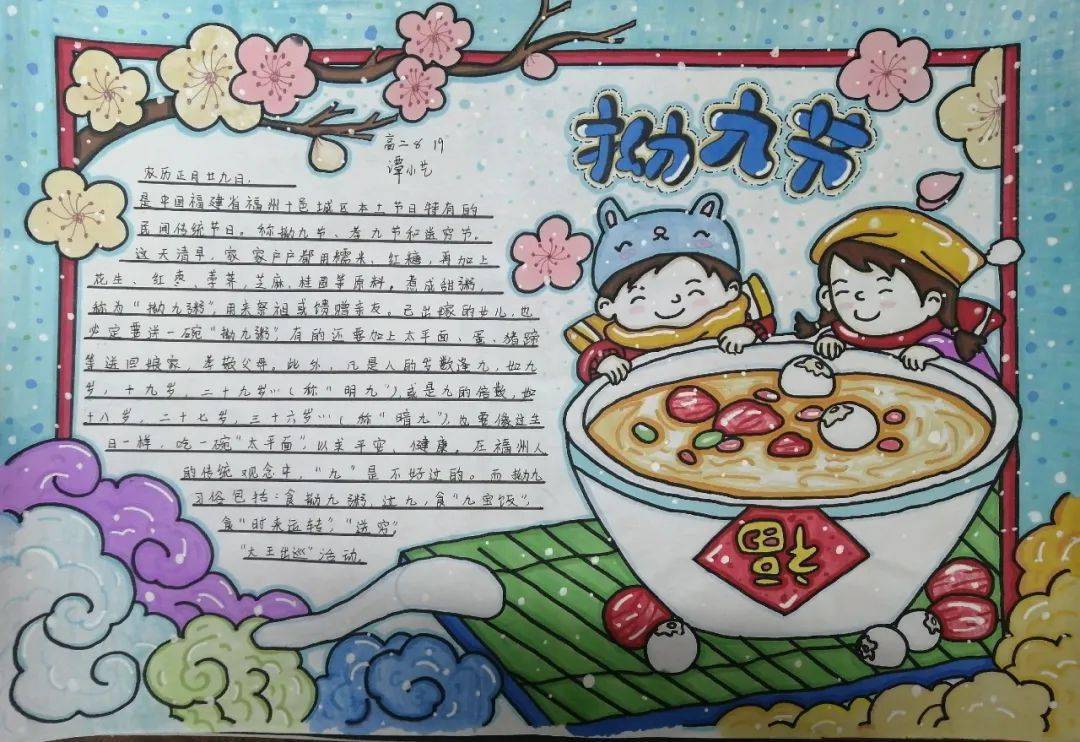 拗九节
高二8 19
谭小艺
农历正月廿九日，
是中国福建省福州十邑城区本土节日特有的
民间传统节日。称拗九节、孝九节和送穷节。
这天清早，家家户户都用糯米、红糖，再加上
花生、红枣、荸荠、芝麻、桂圆等原料。煮成甜粥，
称为“拗九粥”，用来祭祖或馈赠亲友。已出嫁的女儿，也
必定要送一碗“拗九粥”，有的还要加上太平面、蛋、猪蹄
等送回娘家，孝敬父母。此外，凡是人的岁数逢九，如九
岁，十九岁，二十九岁…（称“明九”）或是九的倍数，如
十八岁，二十七岁，三十六岁…（称“暗九”），也要像过生
日一样，吃一碗“太平面”，以求平安、健康。在福州人
的传统观念中，“九”是不好过的。而拗九
习俗包括：食拗九粥，过九，食“九宝饭”，
食“时来运转”，“送穷”，
“大王出巡”活动。
福